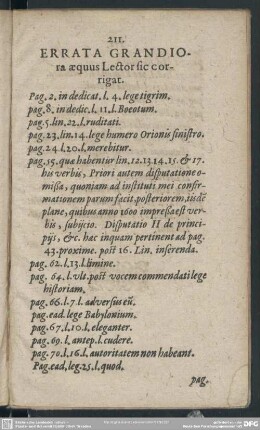 211.
ERRATA GRANDIO-
ra æquus Lector sic cor-
rigat.
Pag. 2. in dedicat. l. 4. lege tigrim.
pag. 8. in dedic. l. 11. l. Boeotum.
Pag. 5. lin. 22. l. ruditati.
pag. 23. lin. 14. lege humero Orionis sinistro.
pag. 24 l. 20. l. merebitur.
pag. 35. quæ habentur lin. 12. 13. 14. 15. & 17.
his verbis, Priori autem disputatione o-
missa, quoniam ad instituti mei confir-
mationem parum facit, posteriorem, iisdē
planè, quibus anno 1600 impressa est ver-
bis, subijcio. Disputatio II de princi-
pijs, &c. hac inquam pertinent ad pag.
43. proxime. post 16. Lin. inserenda.
pag. 62. l. 13. l. limine.
pag. 64. l. vlt. post vocem commendati lege
historiam.
pag. 66. l. 7. l. adversus eū.
pag. ead. lege Babylonium.
pag. 67. l. 10. l. eleganter.
pag. 69. l. antep. l. cudere.
pag. 70. l. 16. l. autoritatem non habeant.
Pag. ead. leg. 25. l. quod.
pag.